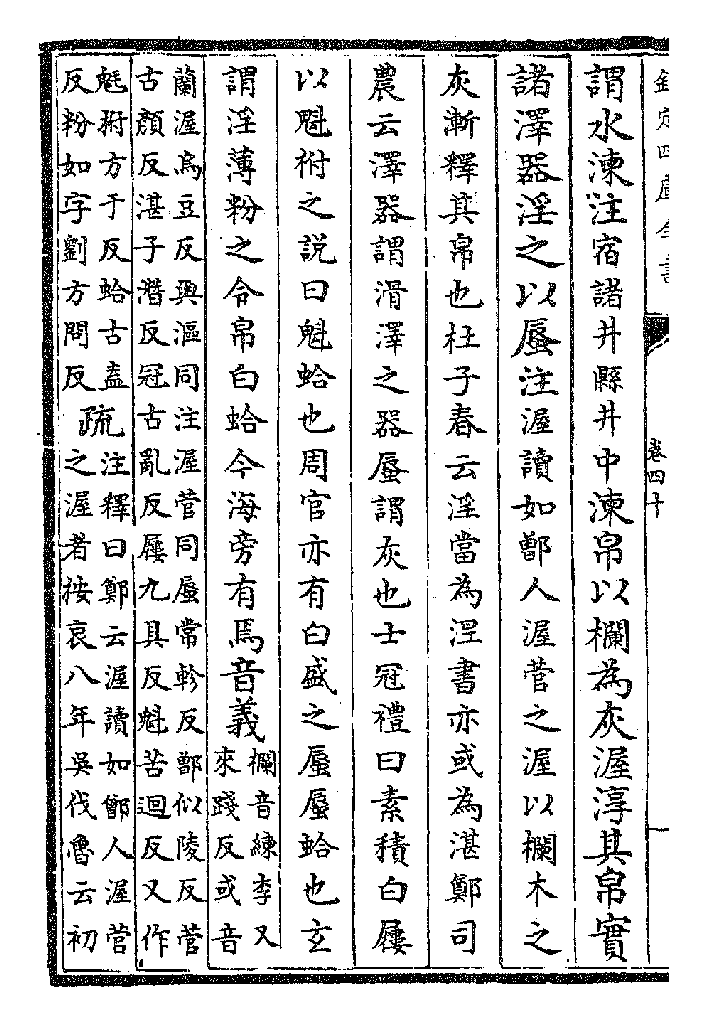 欽定四庫全書
卷四十
謂水湅注宿諸井縣井中湅帛以欄為灰渥淳其帛實
諸澤器淫之以蜃注渥讀如鄫人渥菅之渥以欄木之
灰漸釋其帛也杜子春云淫當為涅書亦或為湛鄭司
農云澤器謂滑澤之器蜃謂灰也士冠禮曰素積白屨
以魁柎之說曰魁蛤也周官亦有白盛之蜃蜃蛤也玄
謂淫薄粉之令帛白蛤今海旁有焉音義欄音練李又
來踐反或音
蘭渥烏豆反與漚同注渥菅同蜃常軫反鄫似陵反菅
古顔反湛子潛反冠古亂反屨九具反魁苦迴反又作
魁柎方于反蛤古盍
反粉如字劉方問反
疏注釋曰鄭云渥讀如鄫人渥菅
之渥者按哀八年吳伐魯云初